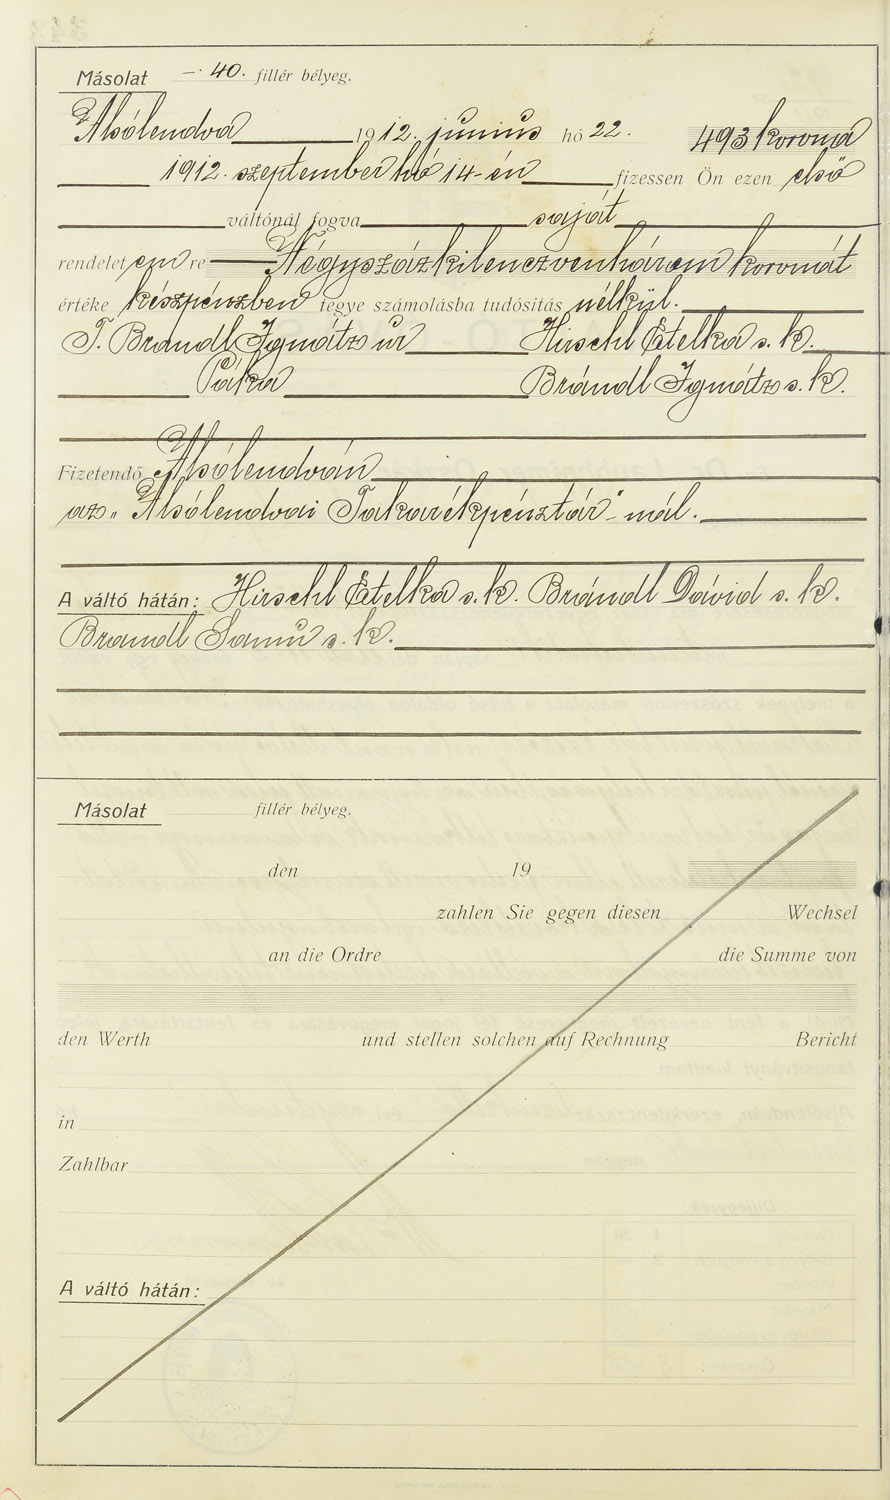 Másolat —·40. fillér bélyeg.
Alsólendva 1912. június hó 22. 493 korona
1912. szeptember hó 14-én fizessen Ön ezen első
váltónál fogva saját
rendelet em re Négyszázkilenczvenhárom koronát
értéke készpénzben tegye számolásba tudósítás nélkül.
T. Brandl Ignátz úr Hirschl Etelka s. k.
Páka Brándl Ignátz s. k.
Fizetendő Alsólendván
az „Alsólendvai Takarékpénztár"-nál.
A váltó hátán: Hirschl Etelka s. k. Brándl Dávid s. k.
Brandl Samu s. k.
Másolat fillér bélyeg.
den 19
zahlen Sie gegen diesen Wechsel
an die Ordre die Summe von
den Werth und stellen solchen auf Rechnung Bericht
in
Zahlbar
A váltó hátán: